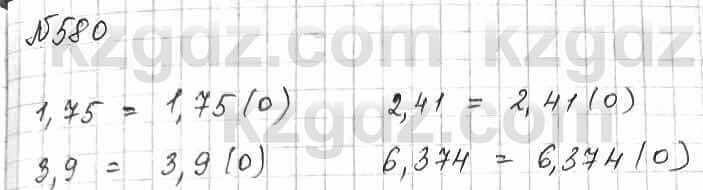 №580
kzgdz.com kzgdz
1,75 = 1,75(0) 2,41 = 2,41(0)
3,9 = 3,9(0) 6,374 = 6,374(0)